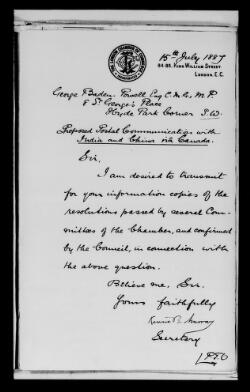 15th July 1887
84-85, King William Street,
London, E.C.
George Baden-Powell Esq C.M.G. M.P
8 St George's Place
Hyde Park Corner S.W.
Proposed Postal Communication with
India and China via Canada.
Sir,
I am desired to transmit
for your information copies of the
resolutions passed by several Com-
mittees of the Chamber, and confirmed
by the Council, in connection with
the above question.
Believe me, Sir.
Yours faithfully
Kenric B. Murray
Secretary